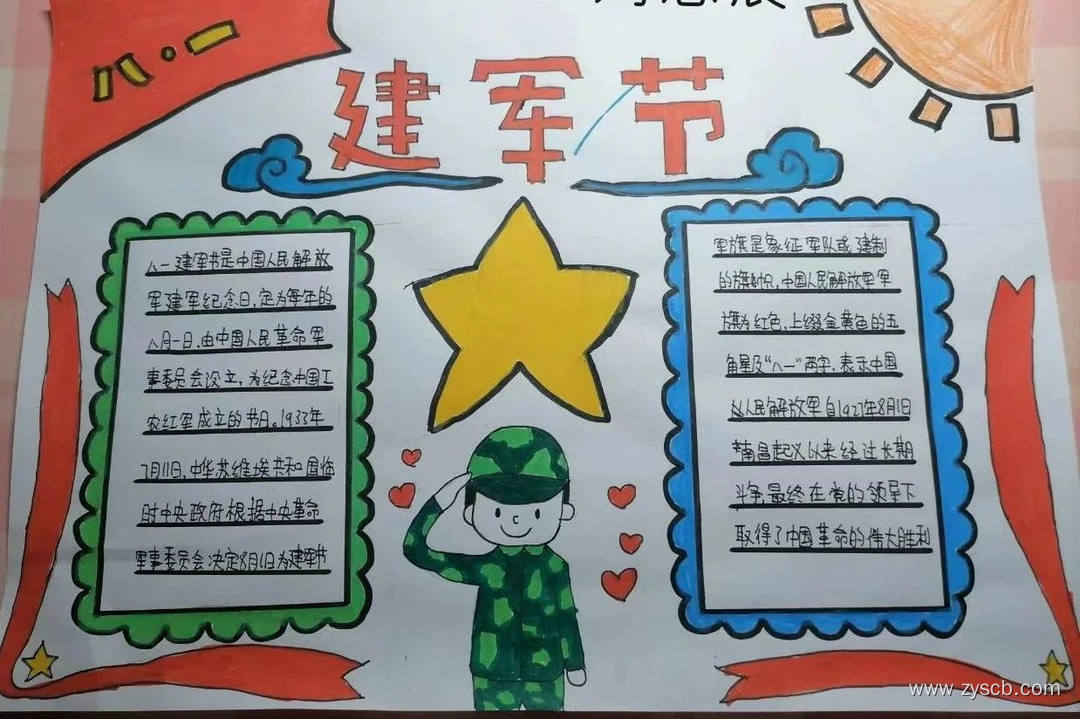 八·一
建军节
八一建军节是中国人民解放
军建军纪念日,定为每年的
八月一日,由中国人民革命军
事委员会设立,为纪念中国工
农红军成立的节日。1933年
7月11日,中华苏维埃共和国临
时中央政府根据中央革命
军事委员会决定8月1日为建军节
军旗是象征军队或建制
的旗帜,中国人民解放军军
旗为红色,上缀金黄色的五
角星及“八一”两字,表示中国
人民解放军自1927年8月1日
南昌起义以来经过长期
斗争最终在党的领导下
取得了中国革命的伟大胜利
www.zyscb.com